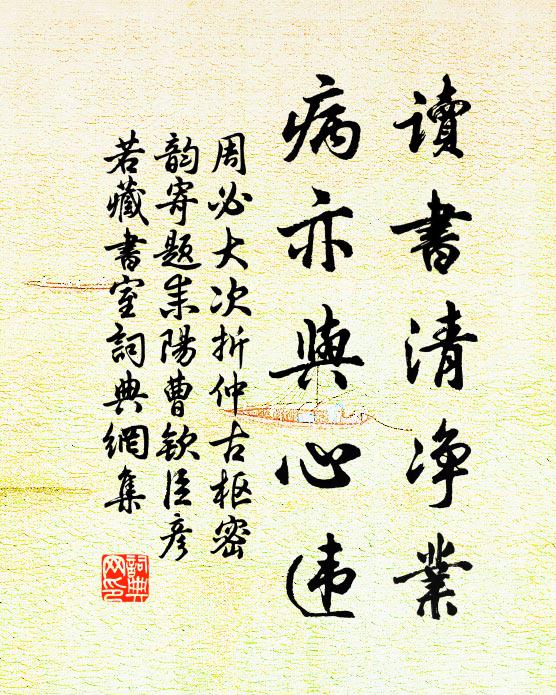 讀書清净業
病亦與心违
周必大次折仲古枢密
韵寄题耒陽曹钦臣彦
若藏書室詞典網集
詞典
网印